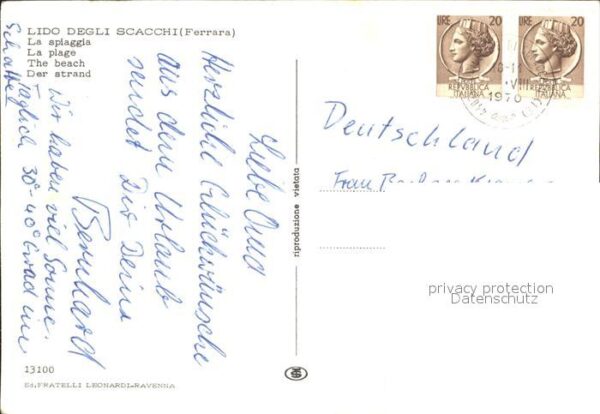 LIDO DEGLI SCACCHI (Ferrara)
La spiaggia
La plage
The beach
Der strand
Liebe Oma
Herzliche Glückwünsche
aus dem Urlaub
sendet Dir Dein
Bernhard
Wir haben viel Sonne.
Täglich 30°-40° Grad im
Schatten
13100
Ed. FRATELLI LEONARDI-RAVENNA
riproduzione vietata
LIRE 20
REPVBBLICA
ITALIANA
LIRE 20
REPVBBLICA
ITALIANA
VIII
1970
Deutschland
Frau Barbara
privacy protection
Datenschutz